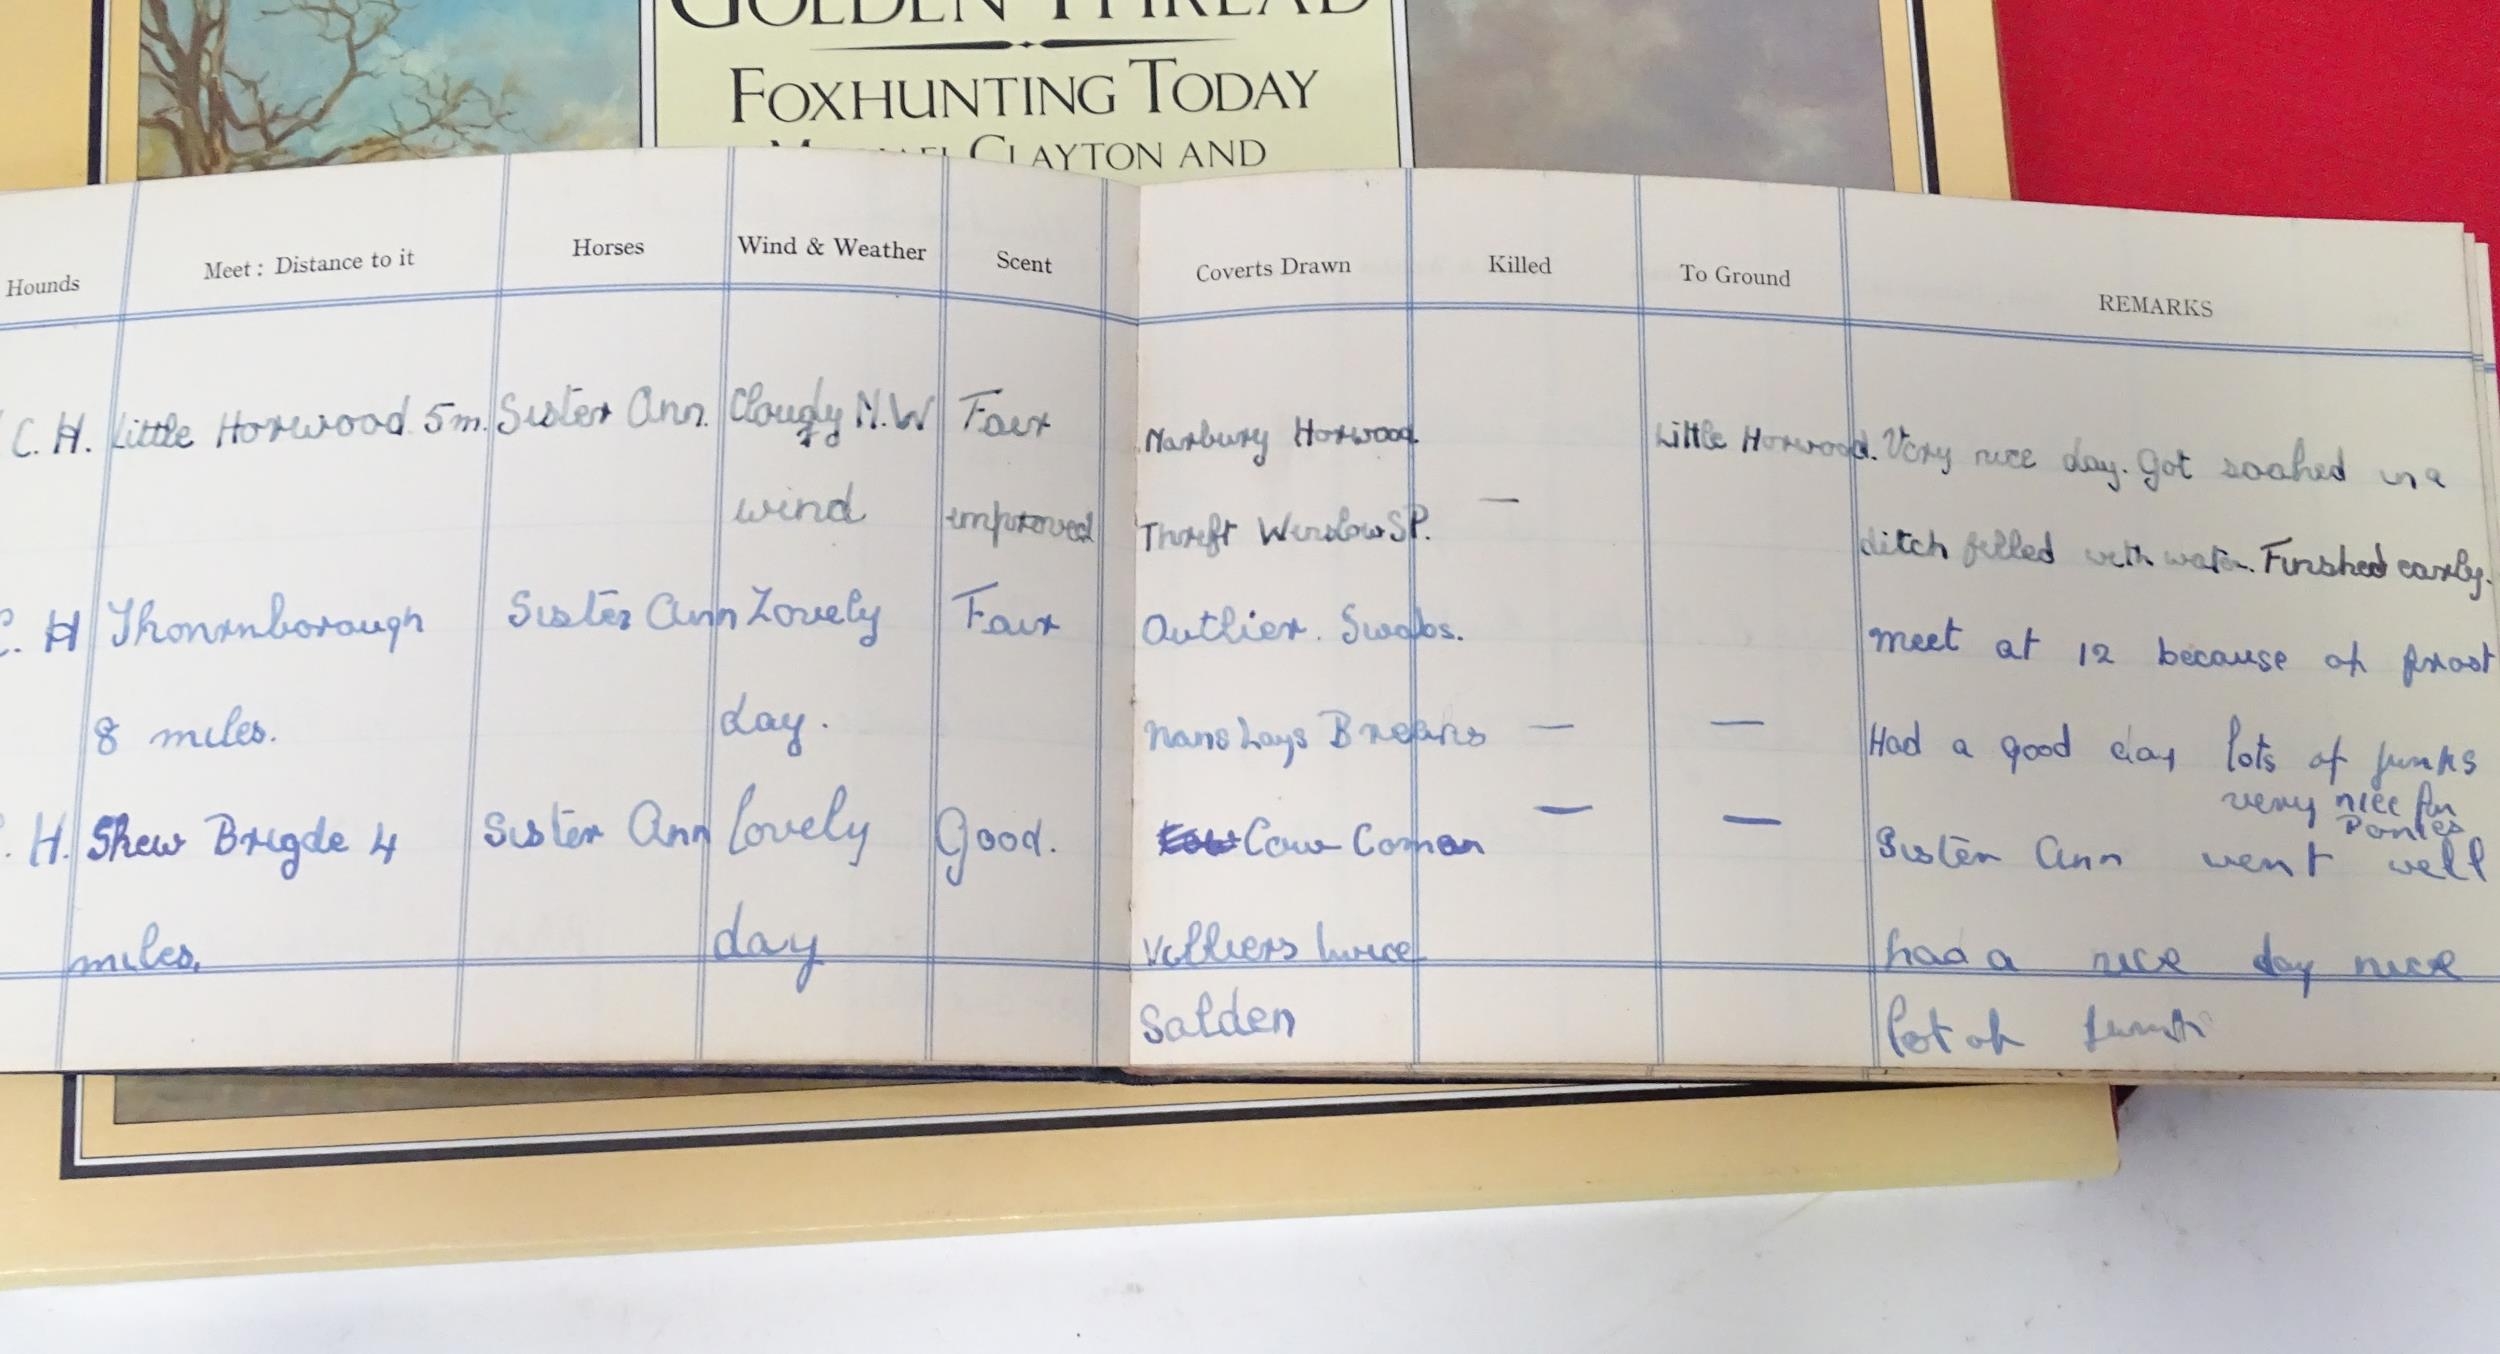 GOLDEN THREAD
FOXHUNTING TODAY
CLAYTON AND
Hounds Meet: Distance to it Horses Wind & Weather Scent Coverts Drawn Killed To Ground REMARKS
C. H. Little Horwood 5m. Sister Ann. Cloudy N.W Fair
wind improved
Narbury Horwood Little Horwood. Very nice day. Got soaked in a
Thrift Winslow SP. — ditch filled with water. Finshed early.
C. H Thonrnborough Sister Ann Lovely Fair Outlier. Swabs. meet at 12 because of frost
8 miles. day. Nans Lays — — Had a good day lots of junks
very nice for
Ponies
. H. Skew Brigde 4 Sister Ann lovely Good. Cow Coman — — Sister Ann went well
miles. day Villiers twice had a nice day nice
Salden lot of